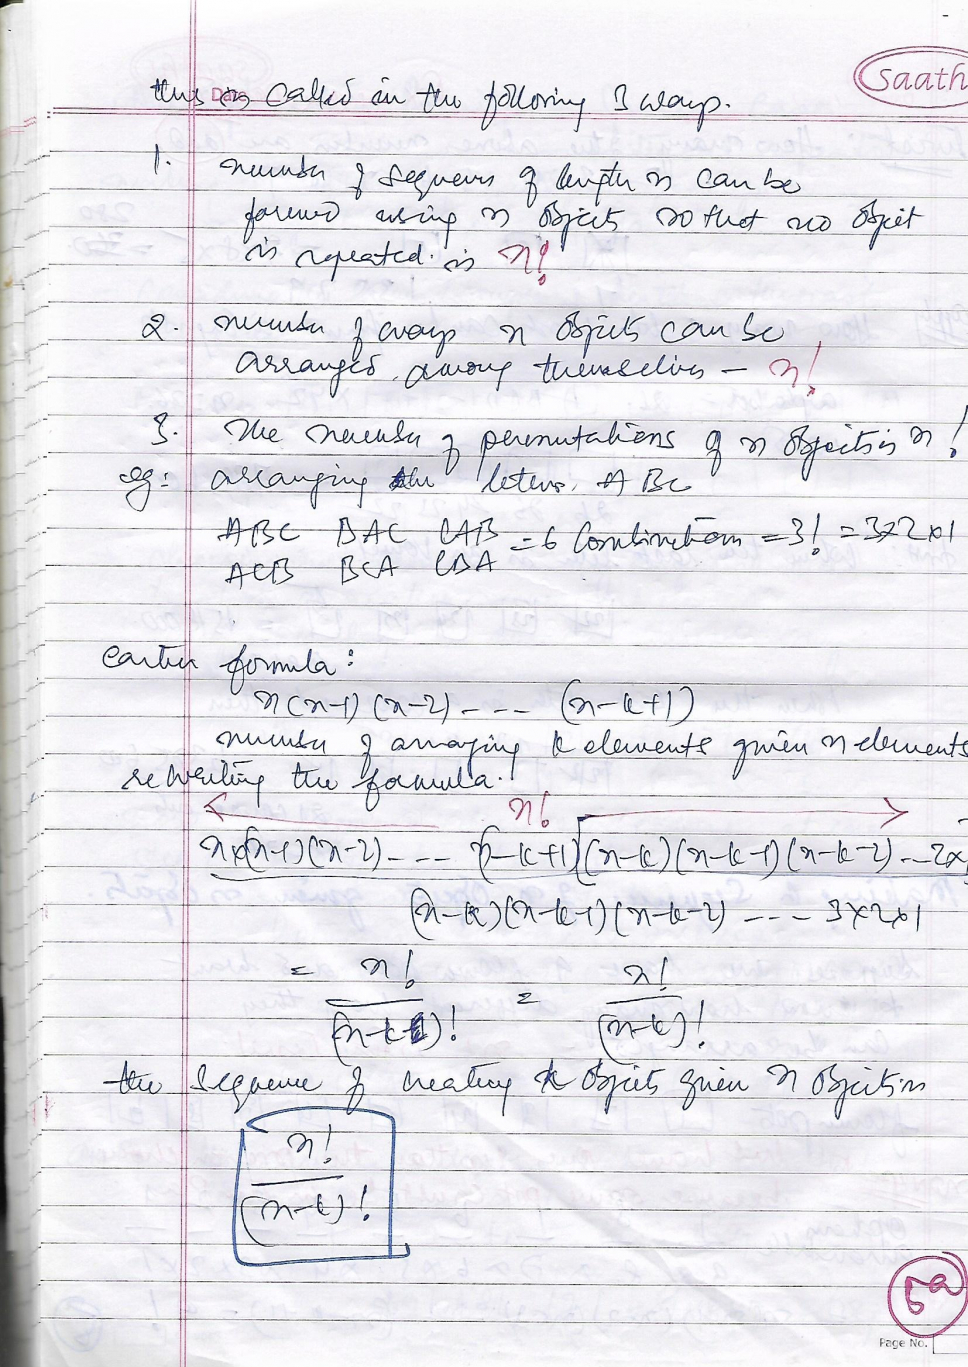 Saath
Date
this is called in the following 3 ways.
1. number of sequences of length n can be
formed using n objects so that no object
is repeated. is n!
2. number of ways n objects can be
arranged among themselves - n!
3. The number of permutations of n objects is n!
eg: arranging the letters. ABC
ABC BAC CAB = 6 Combinations = 3! = 3x2x1
ACB BCA CBA
earlier formula:
n(n-1)(n-2) - - - - (n-k+1)
number of arranging k elements given n elements
rewriting the formula.
n!
n×(n-1)(n-2) - - - - (n-k+1)(n-k)(n-k-1)(n-k-2)...2x1
(n-k)(n-k-1)(n-k-2) - - - - 3x2x1
= n! = n!
(n-k)! (n-k)!
the sequence of creating k objects given n objects is
n!
(n-k)!
5a
Page No.